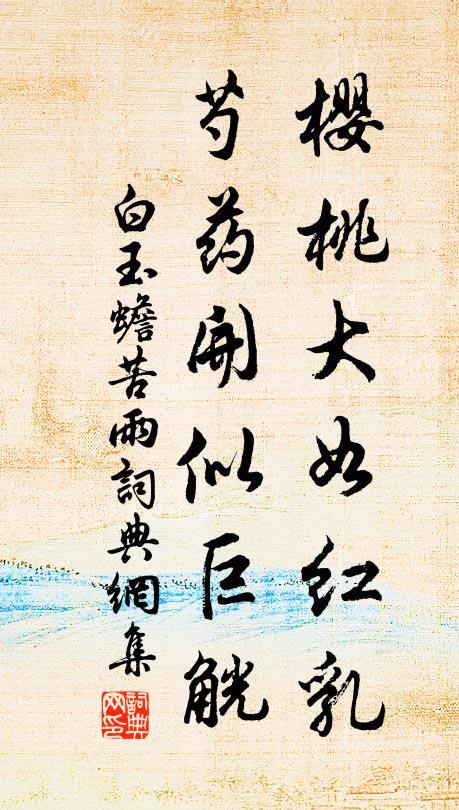 樱桃大如红乳
芍药开似巨觥
白玉蟾苦雨詞典網集
詞典網印